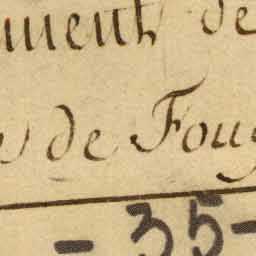 ment de
de Foug
- 35 -